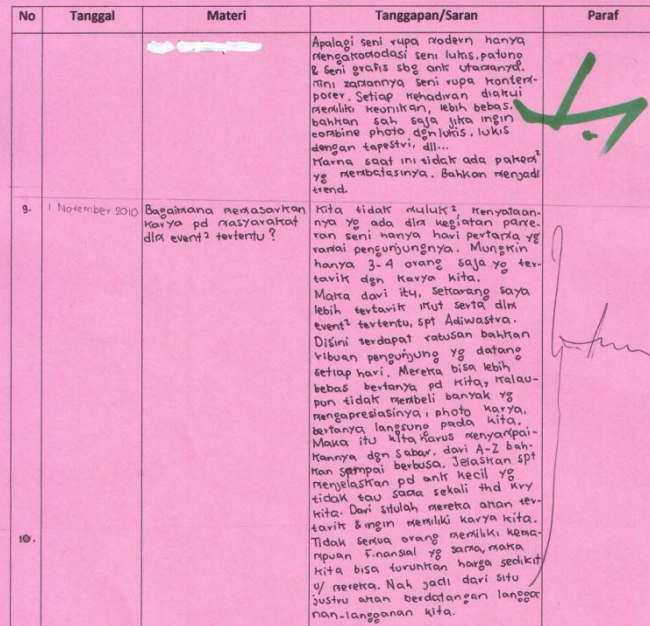 No Tanggal Materi Tanggapan/Saran Paraf
Apalagi seni rupa modern hanya
mengakomodasi seni lukis, patung
& seni grafis sbg ank utamanya.
Kini zamannya seni rupa kontem-
porer. Setiap kehadiran diakui
memiliki keunikan, lebih bebas,
bahkan sah saja jika ingin
combine photo dgn lukis, lukis
dengan tapestri, dll...
Karna saat ini tidak ada pakem²
yg membatasinya. Bahkan menjadi
trend.
9. 1 November 2010 Bagaimana memasarkan Kita tidak muluk² kenyataan-
karya pd masyarakat nya yg ada dlm kegiatan pame-
dlm event² tertentu ? ran seni hanya hari pertama yg
ramai pengunjungnya. Mungkin
hanya 3-4 orang saja yg ter-
tarik dgn karya kita.
Maka dari itu, sekarang saya
lebih tertarik ikut serta dlm
event² tertentu, spt Adiwastra.
Disini terdapat ratusan bahkan
ribuan pengunjung yg datang
setiap hari. Mereka bisa lebih
bebas bertanya pd kita, kalau-
pun tidak membeli banyak yg
mengapresiasinya, photo karya,
bertanya langsung pada kita.
Maka itu kita harus menyampai-
kannya dgn sabar, dari A-Z bah-
kan sampai berbusa. Jelaskan spt
menjelaskan pd ank kecil yg
tidak tau sama sekali thd kry
kita. Dari situlah mereka akan ter-
tarik & ingin memiliki karya kita.
10. Tidak semua orang memiliki kema-
mpuan finansial yg sama, maka
kita bisa turunkan harga sedikit
u/ mereka. Nah jadi dari situ
justru akan berdatangan langga
nan-langganan kita.